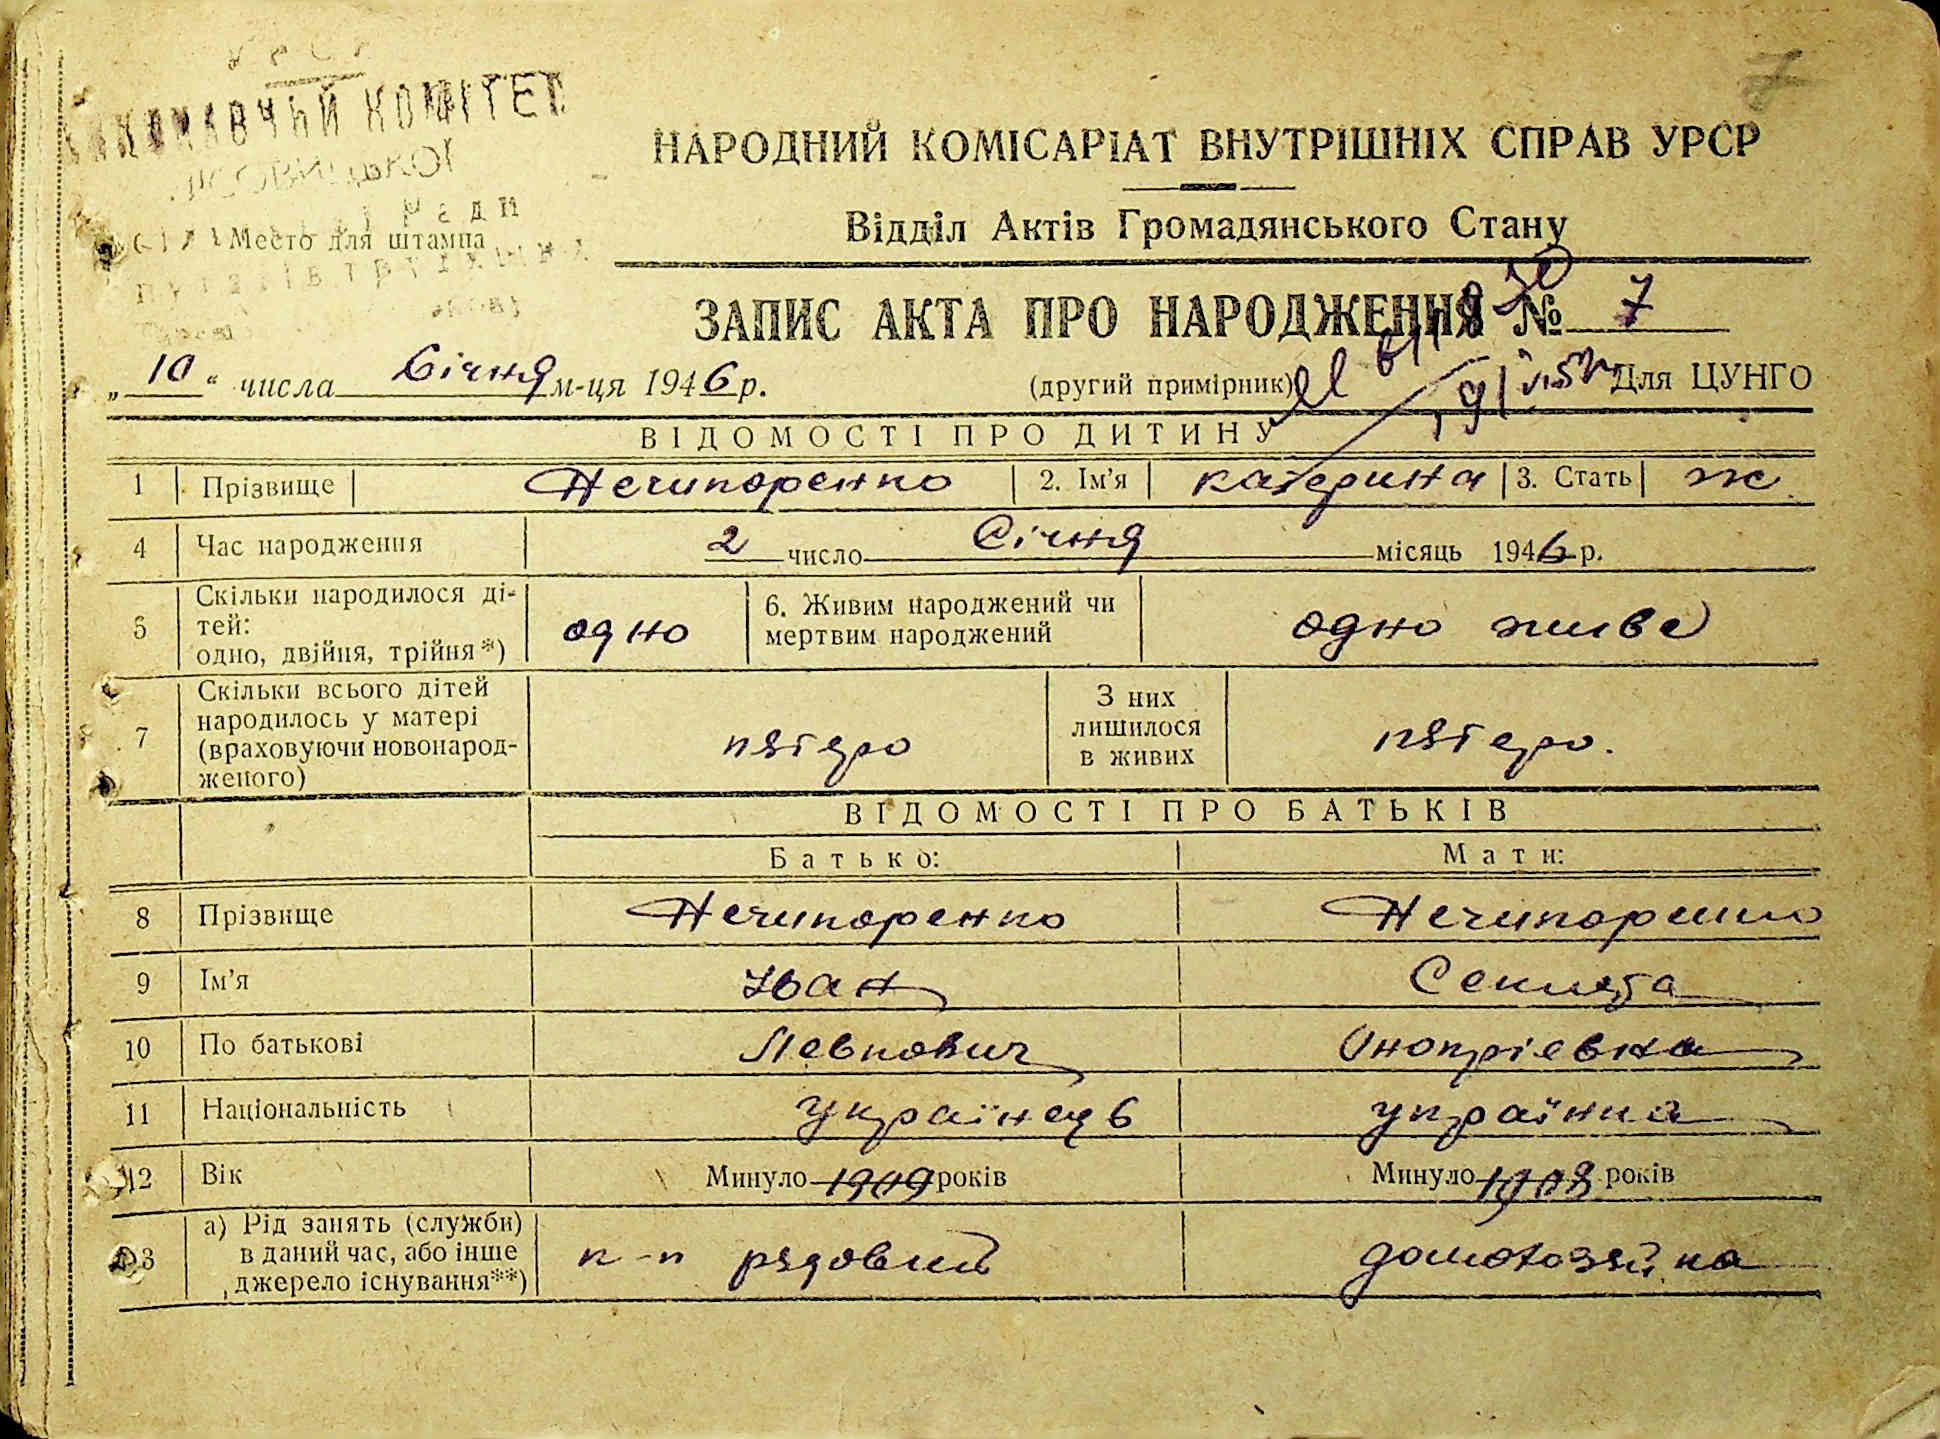 УРСР
ВИКОНАВЧЫЙ КОМІТЕТ
Ради
Место для штампа
7
НАРОДНИЙ КОМІСАРІАТ ВНУТРІШНІХ СПРАВ УРСР
Відділ Актів Громадянського Стану
ЗАПИС АКТА ПРО НАРОДЖЕННЯ № 7
„10“ числа Січня м-ця 1946 р. (другий примірник) Для ЦУНГО
ВІДОМОСТІ ПРО ДИТИНУ
1 Прізвище Нечипоренко 2. Ім'я Катерина 3. Стать ж
4 Час народження 2 число Січня місяць 1946 р.
5 Скільки народилося ді-
тей:
одно, двійня, трійня*) одно 6. Живим народжений чи
мертвим народжений одно живе
7 Скільки всього дітей
народилось у матері
(враховуючи новонарод-
женого) пятеро З них
лишилося
в живих пятеро.
ВІДОМОСТІ ПРО БАТЬКІВ
Батько: Мати:
8 Прізвище Нечипоренко Нечипоренко
9 Ім'я Іван Секлета
10 По батькові Левкович Онопріевна
11 Національність українець українка
12 Вік Минуло 1909 років Минуло 1908 років
13 а) Рід занять (служби)
в даний час, або інше
джерело існування**) к-п рядовий домохазяйка